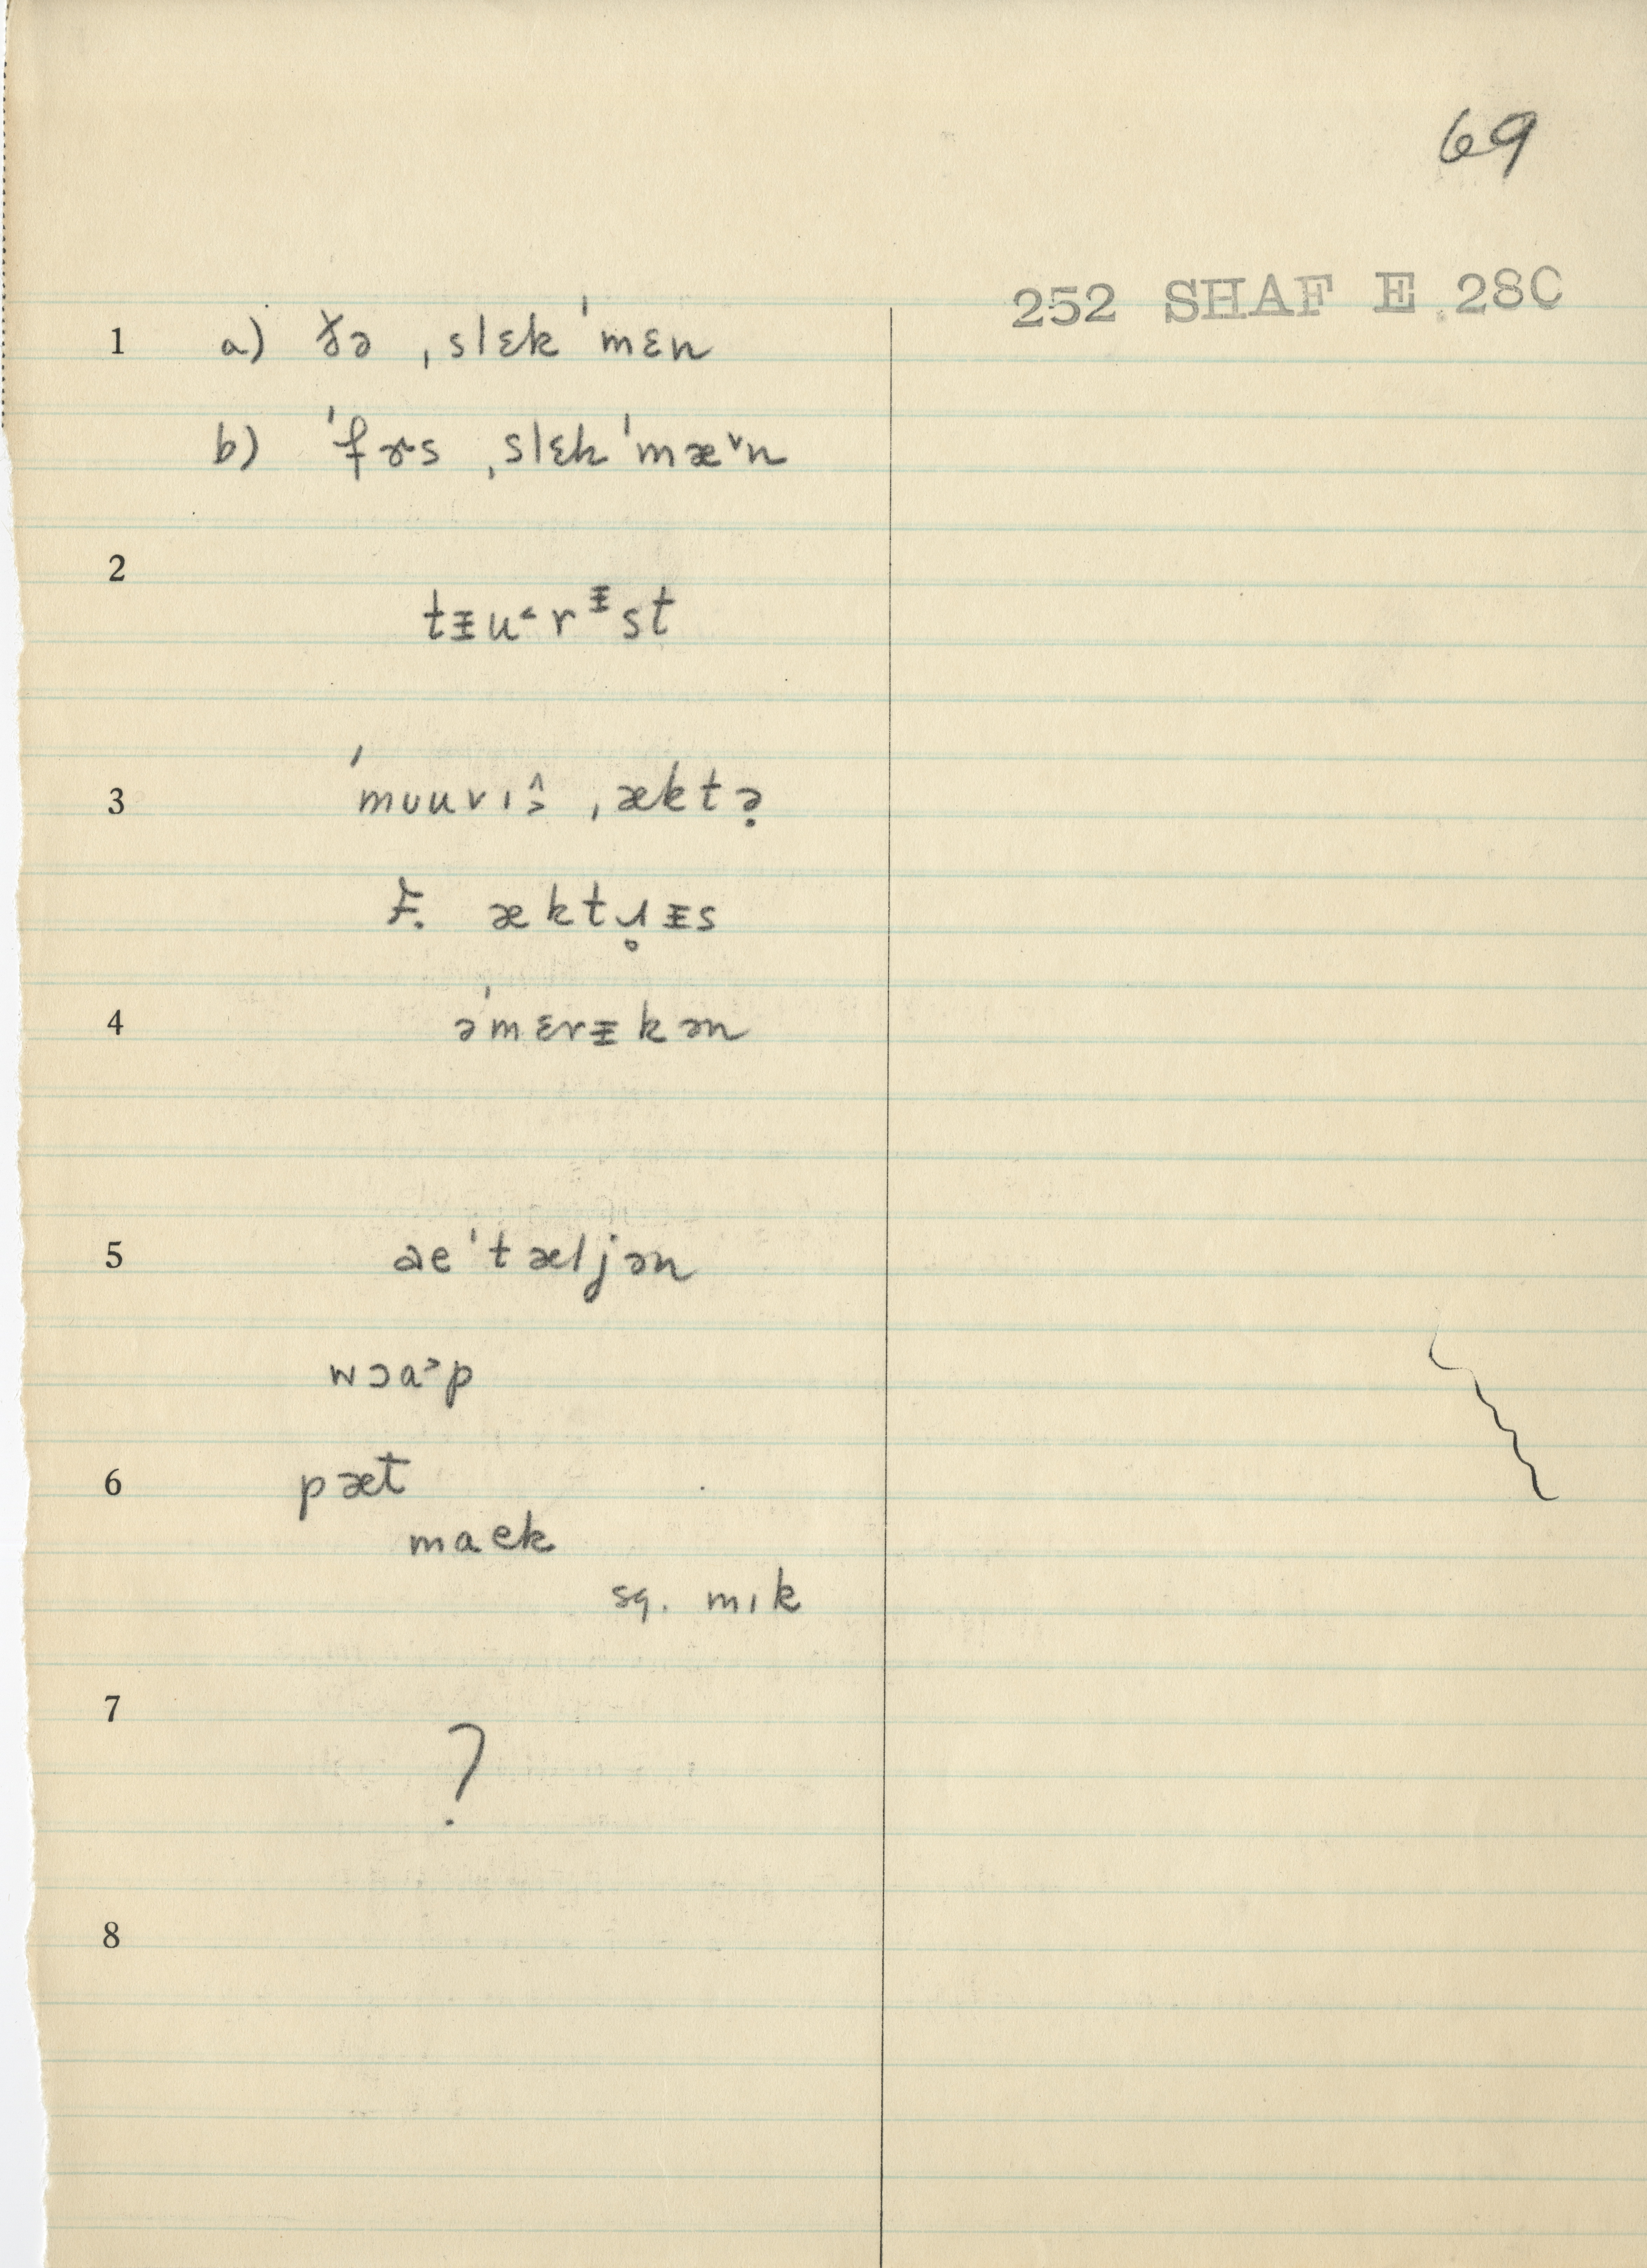 69
252 SHAF E 28C
1 a) ðə ˌslɛkˈmɛn
b) ˈfɚs ˌslɛkˈmæ˅n
2
tᵻu˂rᵻst
3 ˈmʊuvɪ˄˃ ˌæktə̣
F. æktɹ̥ᵻs
4 əˈmɛrᵻkən
5 aeˈtæljən
wɔɑ˃p
6 pæt
maek
sq. mɪk
7
?
8